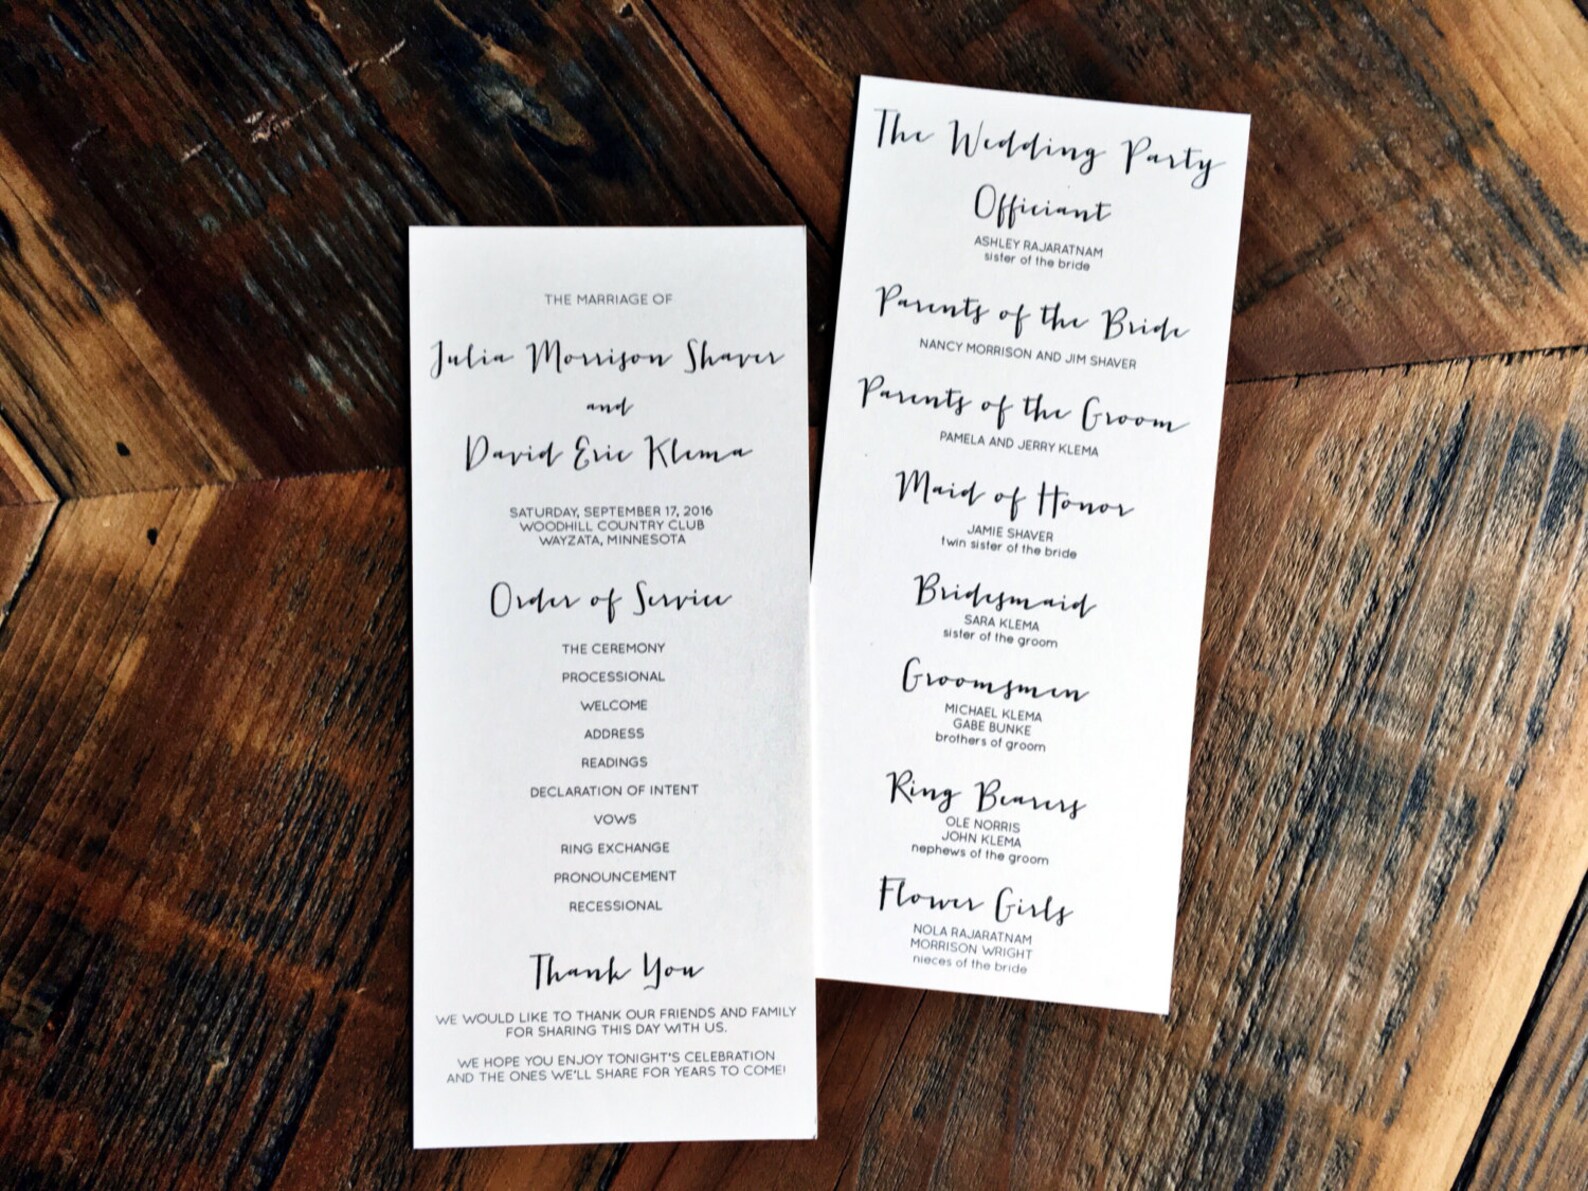 THE MARRIAGE OF
Julia Morrison Shaver
and
David Eric Klema
SATURDAY, SEPTEMBER 17, 2016
WOODHILL COUNTRY CLUB
WAYZATA, MINNESOTA
Order of Service
THE CEREMONY
PROCESSIONAL
WELCOME
ADDRESS
READINGS
DECLARATION OF INTENT
VOWS
RING EXCHANGE
PRONOUNCEMENT
RECESSIONAL
Thank You
WE WOULD LIKE TO THANK OUR FRIENDS AND FAMILY
FOR SHARING THIS DAY WITH US.
WE HOPE YOU ENJOY TONIGHT'S CELEBRATION
AND THE ONES WE'LL SHARE FOR YEARS TO COME!
The Wedding Party
Officiant
ASHLEY RAJARATNAM
sister of the bride
Parents of the Bride
NANCY MORRISON AND JIM SHAVER
Parents of the Groom
PAMELA AND JERRY KLEMA
Maid of Honor
JAMIE SHAVER
twin sister of the bride
Bridesmaid
SARA KLEMA
sister of the groom
Groomsmen
MICHAEL KLEMA
GABE BUNKE
brothers of groom
Ring Bearers
OLE NORRIS
JOHN KLEMA
nephews of the groom
Flower Girls
NOLA RAJARATNAM
MORRISON WRIGHT
nieces of the bride